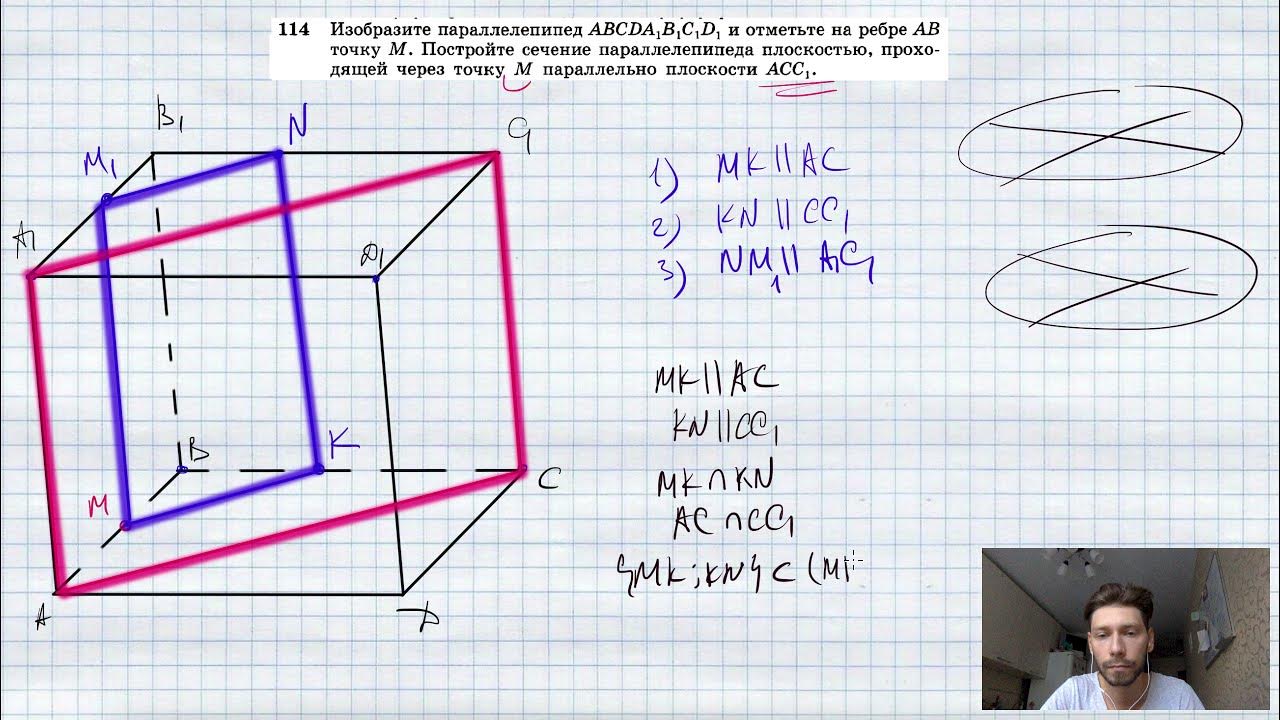 114 Изобразите параллелепипед ABCDA₁B₁C₁D₁ и отметьте на ребре AB
точку M. Постройте сечение параллелепипеда плоскостью, прохо-
дящей через точку M параллельно плоскости ACC₁.
B₁
N
C₁
M₁
A₁
D₁
B
K
M
C
A
D
1) MK||AC
2) KN||CC₁
3) NM₁||A₁C₁
MK||AC
KN||CC₁
MK∩KN
AC∩CC₁
{MK;KN}⊂(MK